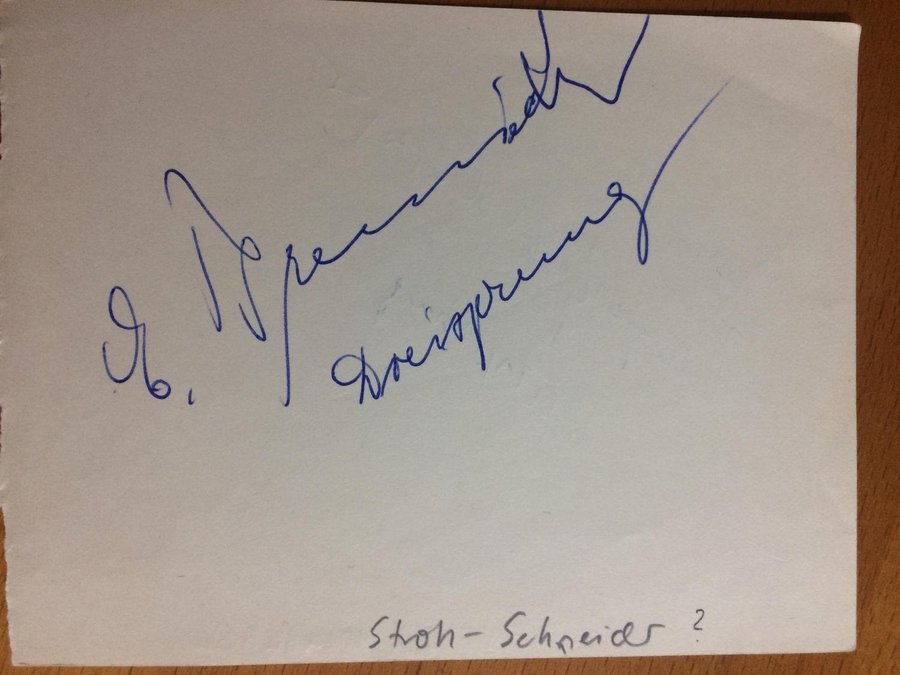 E.
Dreisprung
Stroh - Schneider ?